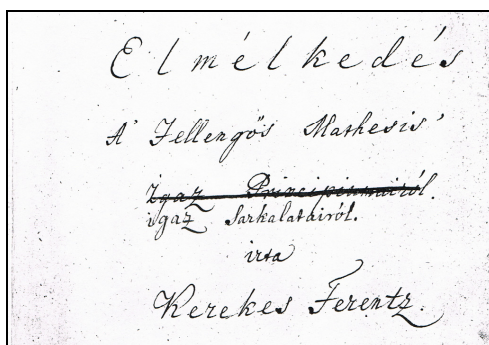 Elmélkedés
A' Fellengős Mathesis'
Igaz Principiumairól.
igaz Sarkalatairól.
irta
Kerekes Ferentz.